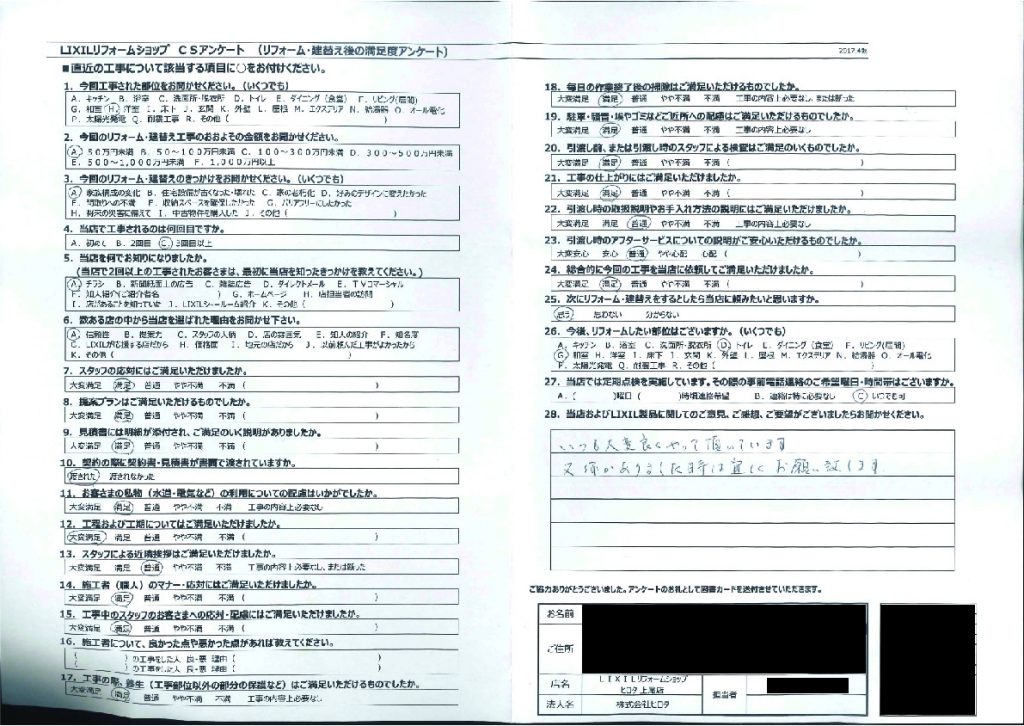 LIXILリフォームショップ CSアンケート (リフォーム・建替え後の満足度アンケート)
2017.4版
■直近の工事について該当する項目に○をお付けください。
1. 今回工事された部位をお聞かせください。(いくつでも)
A. キッチン B. 浴室 C. 洗面所・脱衣所 D. トイレ E. ダイニング(食堂) F. リビング(居間)
G. 和室 H. 洋室 I. 床下 J. 玄関 K. 外壁 L. 屋根 M. エクステリア N. 給湯器 O. オール電化
P. 太陽光発電 Q. 耐震工事 R. その他(
2. 今回のリフォーム・建替え工事のおおよその金額をお聞かせください。
A. 50万円未満 B. 50~100万円未満 C. 100~300万円未満 D. 300~500万円未満
E. 500~1,000万円未満 F. 1,000万円以上
3. 今回のリフォーム・建替えのきっかけをお聞かせください。(いくつでも)
A. 家族構成の変化 B. 住宅設備が古くなった・壊れた C. 家の老朽化 D. 好みのデザインに変えたかった
E. 間取りへの不満 F. 収納スペースを確保したかった G. バリアフリーにしたかった
H. 将来の災害に備えて I. 中古物件を購入した J. その他( )
4. 当店で工事されるのは何回目ですか。
A. 初めて B. 2回目 C. 3回目以上
5. 当店を何でお知りになりましたか。
(当店で2回以上の工事されたお客さまは、最初に当店を知ったきっかけを教えてください。)
A. チラシ B. 新聞紙面上の広告 C. 雑誌広告 D. ダイレクトメール E. TVコマーシャル
F. 知人紹介(ご紹介者名 ) G. ホームページ H. 店担当者の訪問
I. 店があることを知っていた J. LIXILショールーム紹介 K. その他( )
6. 数ある店の中から当店を選ばれた理由をお聞かせ下さい。
A. 信頼性 B. 提案力 C. スタッフの人柄 D. 店の雰囲気 E. 知人の紹介 F. 知名度
G. LIXILが応援する店だから H. 価格度 I. 地元の店だから J. 以前頼んだ工事がよかったから
K. その他( )
7. スタッフの応対にはご満足いただけましたか。
大変満足 満足 普通 やや不満 不満 ( )
8. 提案プランはご満足いただけるものでしたか。
大変満足 満足 普通 やや不満 不満 ( )
9. 見積書には明細が添付され、ご満足のいく説明がありましたか。
大変満足 満足 普通 やや不満 不満 ( )
10. 契約の際に契約書・見積書が書面で渡されていますか。
渡された 渡されなかった
11. お客さまの私物(水道・電気など)の利用についての配慮はいかがでしたか。
大変満足 満足 普通 やや不満 不満 工事の内容上必要なし
12. 工程および工期についてはご満足いただけましたか。
大変満足 満足 普通 やや不満 不満 ( )
13. スタッフによる近隣挨拶はご満足いただけましたか。
大変満足 満足 普通 やや不満 不満 工事の内容上必要なし、または断った
14. 施工者(職人)のマナー・応対にはご満足いただけましたか。
大変満足 満足 普通 やや不満 不満 ( )
15. 工事中のスタッフのお客さまへの応対・配慮にはご満足いただけましたか。
大変満足 満足 普通 やや不満 不満 ( )
16. 施工者について、良かった点や悪かった点があれば教えてください。
( )の工事をした人 良・悪 理由( )
( )の工事をした人 良・悪 理由( )
17. 工事の際、養生(工事部位以外の部分の保護など)はご満足いただけるものでしたか。
大変満足 満足 普通 やや不満 不満 工事の内容上必要なし
18. 毎日の作業終了後の掃除はご満足いただけるものでしたか。
大変満足 満足 普通 やや不満 不満 工事の内容上必要なし、または断った
19. 駐車・騒音・埃やゴミなどご近所への配慮はご満足いただけるものでしたか。
大変満足 満足 普通 やや不満 不満 工事の内容上必要なし
20. 引渡し前、または引渡し時のスタッフによる検査はご満足のいくものでしたか。
大変満足 満足 普通 やや不満 不満 ( )
21. 工事の仕上がりにはご満足いただけましたか。
大変満足 満足 普通 やや不満 不満 ( )
22. 引渡し時の取扱説明やお手入れ方法の説明にはご満足いただけましたか。
大変満足 満足 普通 やや不満 不満 工事の内容上必要なし
23. 引渡し時のアフターサービスについての説明がご安心いただけるものでしたか。
大変安心 安心 普通 やや心配 心配 ( )
24. 総合的に今回の工事を当店に依頼してご満足いただけましたか。
大変満足 満足 普通 やや不満 不満 ( )
25. 次にリフォーム・建替えをするとしたら当店に頼みたいと思いますか。
思う 思わない 分からない
26. 今後、リフォームしたい部位はございますか。(いくつでも)
A. キッチン B. 浴室 C. 洗面所・脱衣所 D. トイレ E. ダイニング(食堂) F. リビング(居間)
G. 和室 H. 洋室 I. 床下 J. 玄関 K. 外壁 L. 屋根 M. エクステリア N. 給湯器 O. オール電化
P. 太陽光発電 Q. 耐震工事 R. その他( )
27. 当店では定期点検を実施しています。その際の事前電話連絡のご希望曜日・時間帯はございますか。
A. ( )曜日( )時頃連絡希望 B. 連絡は特に必要なし C. いつでも可
28. 当店およびLIXIL製品に関してのご意見、ご感想、ご要望がございましたらお聞かせください。
いつも大変良くやって頂いています
又何かありました時は宜しくお願い致します
ご協力ありがとうございました。アンケートのお礼として図書カードを送付させていただきます。
お名前
ご住所
店名 LIXILリフォームショップ ヒロタ上尾店 担当者
法人名 株式会社ヒロタ